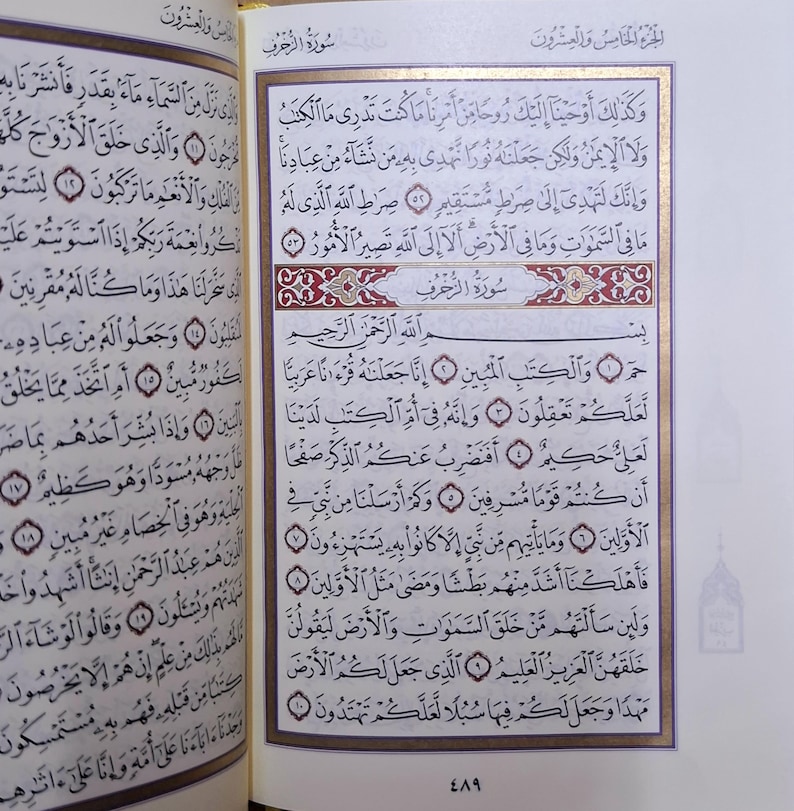 الجزء الخامس والعشرون
سورة الزخرف
وَكَذَٰلِكَ أَوْحَيْنَآ إِلَيْكَ رُوحًا مِّنْ أَمْرِنَا ۚ مَا كُنتَ تَدْرِى مَا ٱلْكِتَٰبُ
وَلَا ٱلْإِيمَٰنُ وَلَٰكِن جَعَلْنَٰهُ نُورًا نَّهْدِى بِهِۦ مَن نَّشَآءُ مِنْ عِبَادِنَا ۚ
وَإِنَّكَ لَتَهْدِىٓ إِلَىٰ صِرَٰطٍ مُّسْتَقِيمٍ ٥٢ صِرَٰطِ ٱللَّهِ ٱلَّذِى لَهُۥ
مَا فِى ٱلسَّمَٰوَٰتِ وَمَا فِى ٱلْأَرْضِ ۗ أَلَآ إِلَى ٱللَّهِ تَصِيرُ ٱلْأُمُورُ ٥٣
سُورَةُ الزُّخْرُفِ
بِسْمِ ٱللَّهِ ٱلرَّحْمَٰنِ ٱلرَّحِيمِ
حمٓ ١ وَٱلْكِتَٰبِ ٱلْمُبِينِ ٢ إِنَّا جَعَلْنَٰهُ قُرْءَٰنًا عَرَبِيًّا
لَّعَلَّكُمْ تَعْقِلُونَ ٣ وَإِنَّهُۥ فِىٓ أُمِّ ٱلْكِتَٰبِ لَدَيْنَا
لَعَلِىٌّ حَكِيمٌ ٤ أَفَنَضْرِبُ عَنكُمُ ٱلذِّكْرَ صَفْحًا
أَن كُنتُمْ قَوْمًا مُّسْرِفِينَ ٥ وَكَمْ أَرْسَلْنَا مِن نَّبِىٍّ فِى
ٱلْأَوَّلِينَ ٦ وَمَا يَأْتِيهِم مِّن نَّبِىٍّ إِلَّا كَانُوا۟ بِهِۦ يَسْتَهْزِءُونَ ٧
فَأَهْلَكْنَآ أَشَدَّ مِنْهُم بَطْشًا وَمَضَىٰ مَثَلُ ٱلْأَوَّلِينَ ٨
وَلَئِن سَأَلْتَهُم مَّنْ خَلَقَ ٱلسَّمَٰوَٰتِ وَٱلْأَرْضَ لَيَقُولُنَّ
خَلَقَهُنَّ ٱلْعَزِيزُ ٱلْعَلِيمُ ٩ ٱلَّذِى جَعَلَ لَكُمُ ٱلْأَرْضَ
مَهْدًا وَجَعَلَ لَكُمْ فِيهَا سُبُلًا لَّعَلَّكُمْ تَهْتَدُونَ ١٠
٤٨٩
الخامس والعشرون
نَزَّلَ مِنَ ٱلسَّمَآءِ مَآءًۢ بِقَدَرٍ فَأَنشَرْنَا بِهِۦ
تُخْرَجُونَ ١١ وَٱلَّذِى خَلَقَ ٱلْأَزْوَٰجَ كُلَّهَا
مِّنَ ٱلْفُلْكِ وَٱلْأَنْعَٰمِ مَا تَرْكَبُونَ ١٢ لِتَسْتَوُۥا۟
تَذْكُرُوا۟ نِعْمَةَ رَبِّكُمْ إِذَا ٱسْتَوَيْتُمْ عَلَيْهِ
ٱلَّذِى سَخَّرَ لَنَا هَٰذَا وَمَا كُنَّا لَهُۥ مُقْرِنِينَ
لَمُنقَلِبُونَ ١٤ وَجَعَلُوا۟ لَهُۥ مِنْ عِبَادِهِۦ
لَكَفُورٌ مُّبِينٌ ١٥ أَمِ ٱتَّخَذَ مِمَّا يَخْلُقُ
بِٱلْبَنِينَ ١٦ وَإِذَا بُشِّرَ أَحَدُهُم بِمَا ضَرَبَ
ظَلَّ وَجْهُهُۥ مُسْوَدًّا وَهُوَ كَظِيمٌ ١٧
ٱلْحِلْيَةِ وَهُوَ فِى ٱلْخِصَامِ غَيْرُ مُبِينٍ ١٨
ٱلَّذِينَ هُمْ عِبَٰدُ ٱلرَّحْمَٰنِ إِنَٰثًا ۚ أَشَهِدُوا۟
شَهَٰدَتُهُمْ وَيُسْـَٔلُونَ ١٩ وَقَالُوا۟ لَوْ شَآءَ
مَّا لَهُم بِذَٰلِكَ مِنْ عِلْمٍ ۖ إِنْ هُمْ إِلَّا يَخْرُصُونَ
كِتَٰبًا مِّن قَبْلِهِۦ فَهُم بِهِۦ مُسْتَمْسِكُونَ
وَجَدْنَآ ءَابَآءَنَا عَلَىٰٓ أُمَّةٍ وَإِنَّا عَلَىٰٓ ءَاثَٰرِهِم